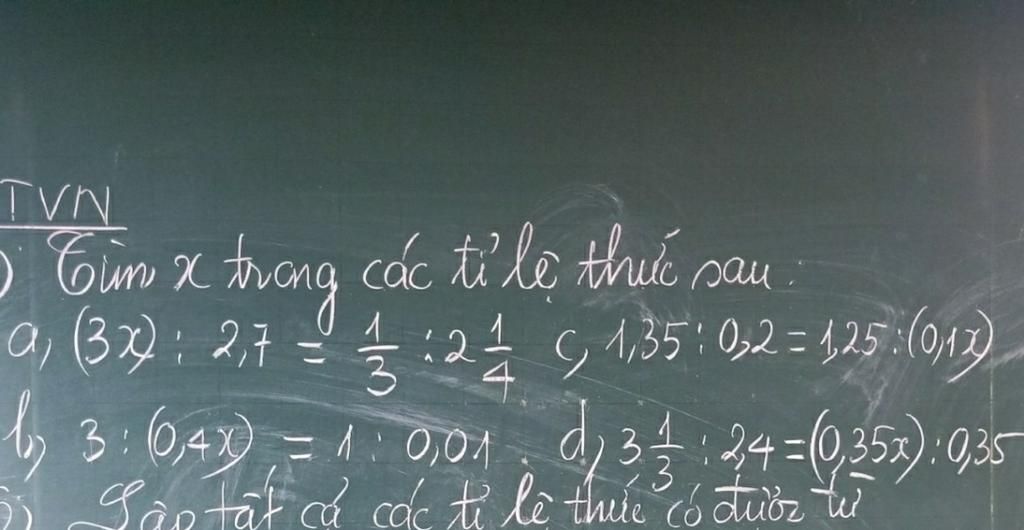 TVN
) Tìm x trong các tỉ lệ thức sau:
a, (3x) : 2,7 = 1/3 : 2 1/4 c, 1,35 : 0,2 = 1,25 : (0,1x)
b, 3 : (0,4x) = 1 : 0,01 d, 3 1/3 : 2,4 = (0,35x) : 0,35
) Lập tất cả các tỉ lệ thức có được từ